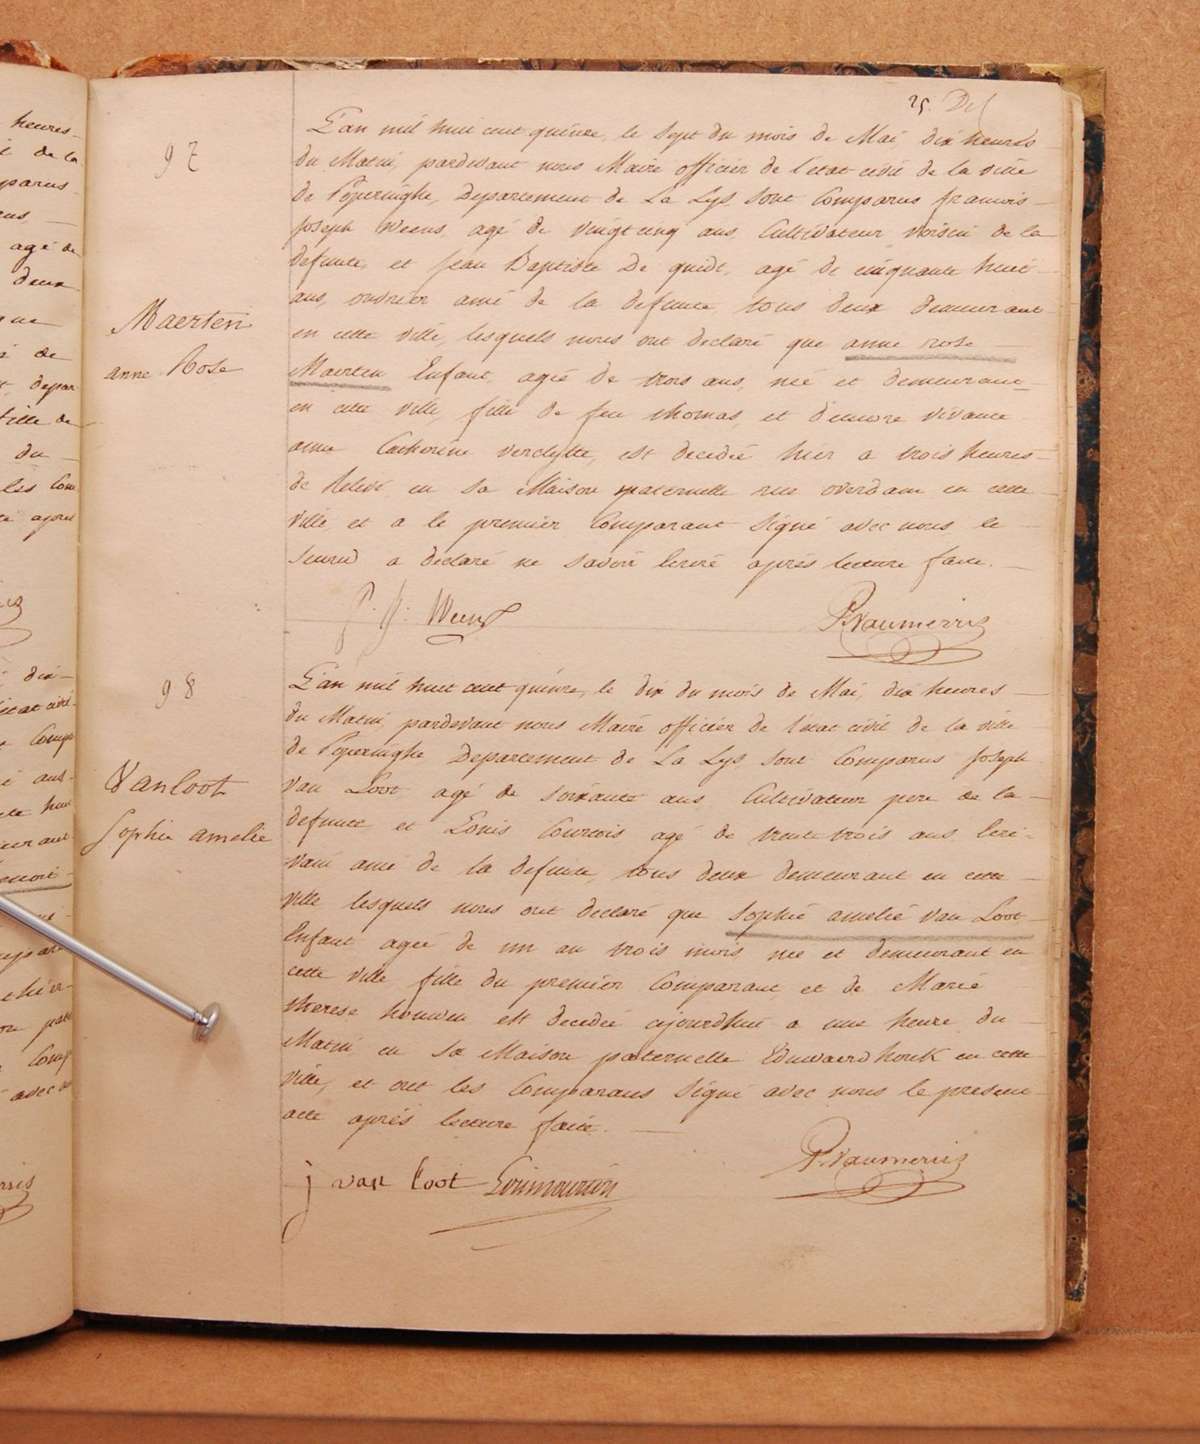 25. Del
97
L'an mil huit cent quinze, le sept du mois de Mai, dix heures
du Matin, pardevant nous Maire officier de l'etat civil de la ville
de Poperinghe, Departement de La Lys, sont Comparus francois
Joseph Weens, agé de vingt cinq ans, Cultivateur voisin de la
defunte, et Jean Baptiste De quidt, agé de cinquante huit
ans, ouvrier ami de la defunte, tous deux demeurant
en cette ville, lesquels nous ont declaré que anne rose
Maerten
anne Rose
Maerten Enfant, agée de trois ans, née et demeurant
en cette ville, fille de feu thomas, et d'encore vivante
anne Catherine verclytte, est decedée hier a trois heures
de Relevé en sa Maison maternelle rue overdam en cette
ville et a le premier Comparant signé avec nous le
second a declaré ne savoir écrire après lecture faite.
f. j. Weens
P. vaumerris
98
L'an mil huit cent quinze, le dix du mois de Mai, dix heures
du Matin, pardevant nous Maire officier de l'etat civil de la ville
de Poperinghe Departement de La Lys sont Comparus Joseph
van Loot agé de soixante ans, Cultivateur pere de la
Vanloot
Sophie amelie
defunte et Louis Courtois agé de trente trois ans Ecri-
vain ami de la defunte, tous deux demeurant en cette
ville lesquels nous ont declaré que Sophié amelié van Loot
Enfant agée de un an trois mois, née et demeurant en
cette ville fille du premier Comparant, et de Marie
therese houwen est decedée ajourdhui a une heure du
Matin en sa Maison paternelle Eduwaerdhouk en cette
ville, et ont les Comparans signé avec nous le present
acte après lecture faite.
j van Loot
P. vaumerris